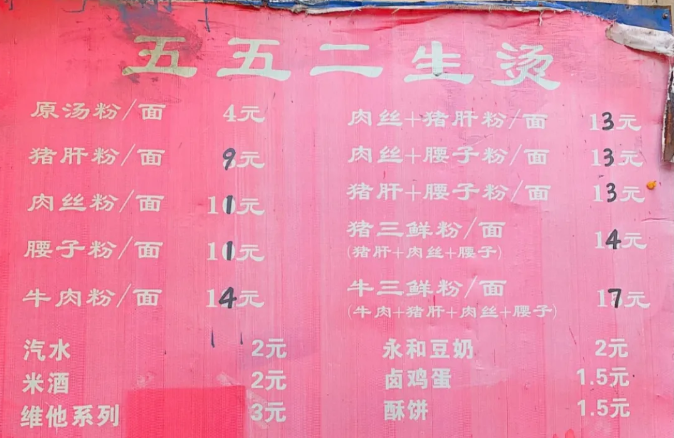 五五二生烫
原汤粉/面 4元
猪肝粉/面 9元
肉丝粉/面 11元
腰子粉/面 11元
牛肉粉/面 14元
汽水 2元
米酒 2元
维他系列 3元
肉丝+猪肝粉/面 13元
肉丝+腰子粉/面 13元
猪肝+腰子粉/面 13元
猪三鲜粉/面 14元
(猪肝+肉丝+腰子)
牛三鲜粉/面 17元
(牛肉+猪肝+肉丝+腰子)
永和豆奶 2元
卤鸡蛋 1.5元
酥饼 1.5元